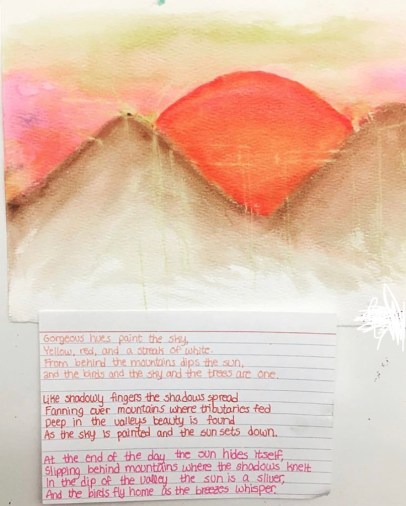 Gorgeous hues paint the sky,
Yellow, red, and a streak of white.
From behind the mountains dips the sun,
and the birds and the sky and the trees are one.
Like shadowy fingers the shadows spread
Fanning over mountains where tributaries fed
Deep in the valleys beauty is found
As the sky is painted and the sun sets down.
At the end of the day the sun hides itself,
Slipping behind mountains where the shadows knelt
In the dip of the valley the sun is a sliver,
And the birds fly home as the breezes whisper.